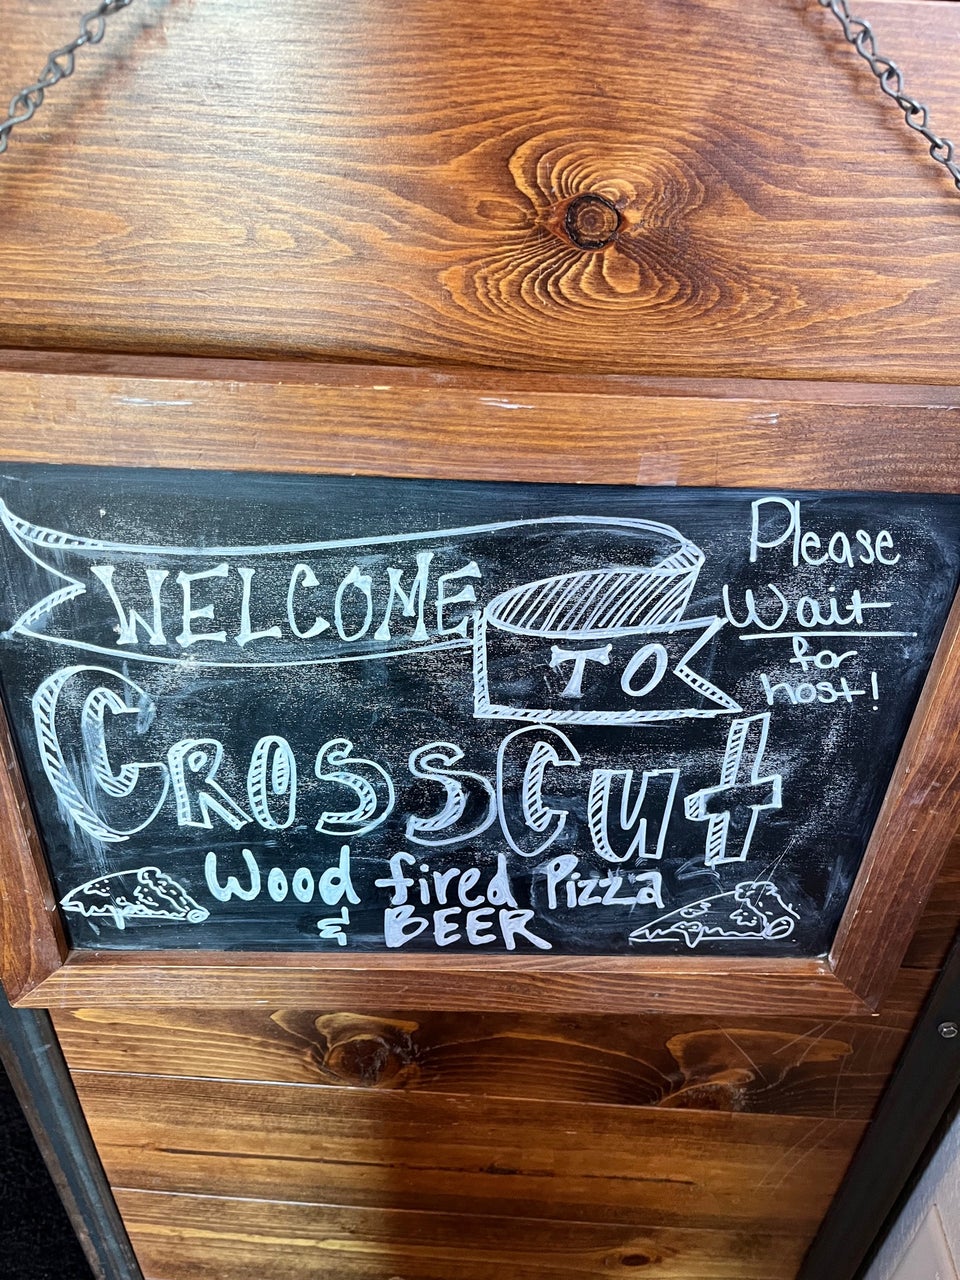 WELCOME
TO
CROSSCut
Wood fired Pizza
& BEER
Please
Wait
for
host!